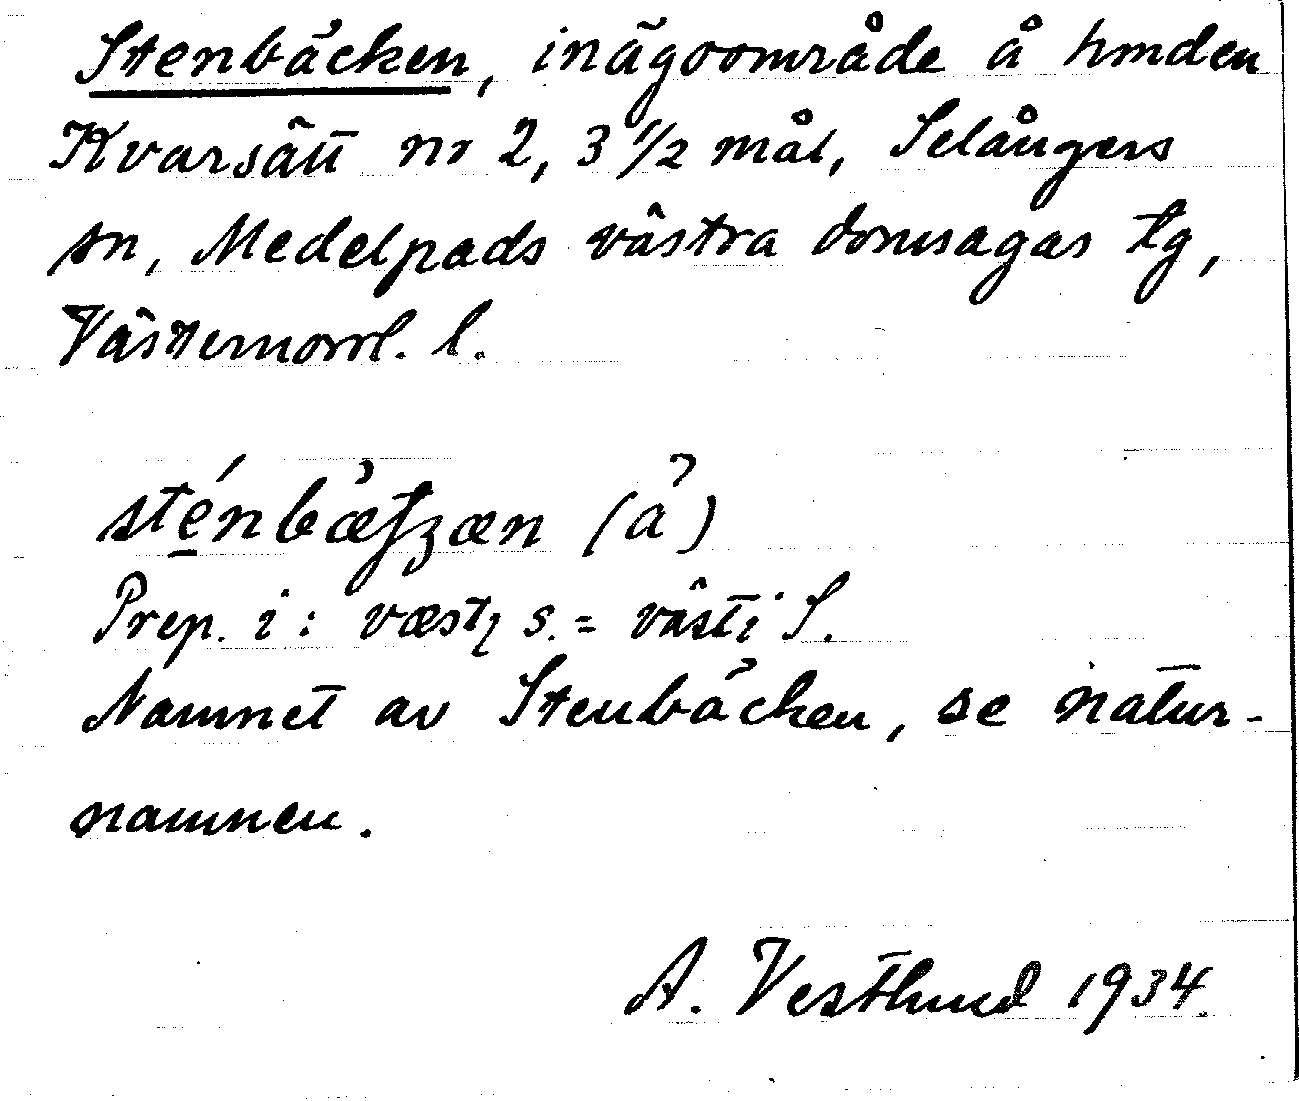 Stenbäcken, inägoområde å hmden
Kvarsätt nr 2, 3 1/2 mål, Selångers
sn, Medelpads västra domsagas tg,
Västernorrl. l.
sténbæ̉ʃʒæn (ả)
Prep. i: væstɩ s. = västi S.
Namnet av Stenbäcken, se natur-
namnen.
A. Vestlund 1934.